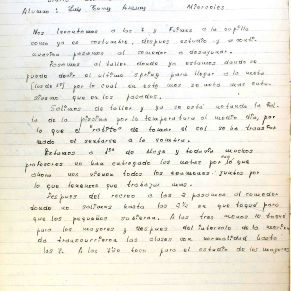 Alumno: Luis Miércoles
Nos levantamos a las 7 y fuimos a la capilla
como ya es costumbre, despues estudio y a conti-
nuación pasamos al comedor a desayunar.
Pasamos al taller donde ya estamos donde se
puede decir el ultimo spring para llegar a la meta
por lo cual en este mes se nota mas entu-
siasmo que en los pasados.
Salimos de taller y ya se está notando la fal-
ta de la piscina por la temperatura al medio dia, por
lo que el "ratito" de tomar el sol se ha transfor-
mado al sentarse a la sombra.
Entramos a 1ª de clase y todavia muchos
profesores no han entregado las notas por lo que
ahora nos vienen todos los examenes juntos por
lo que tenemos que trabajar mas.
Despues del recreo a las 2 pasamos al comedor
donde no salimos hasta las 2½ en que toque para
que los pequeños subieran. A las tres menos 10 toque
para los mayores y despues del intervalo de la
da transcurrieron las clases con normalidad hasta
las 7. A las 7½ toco para el estudio de los mayores